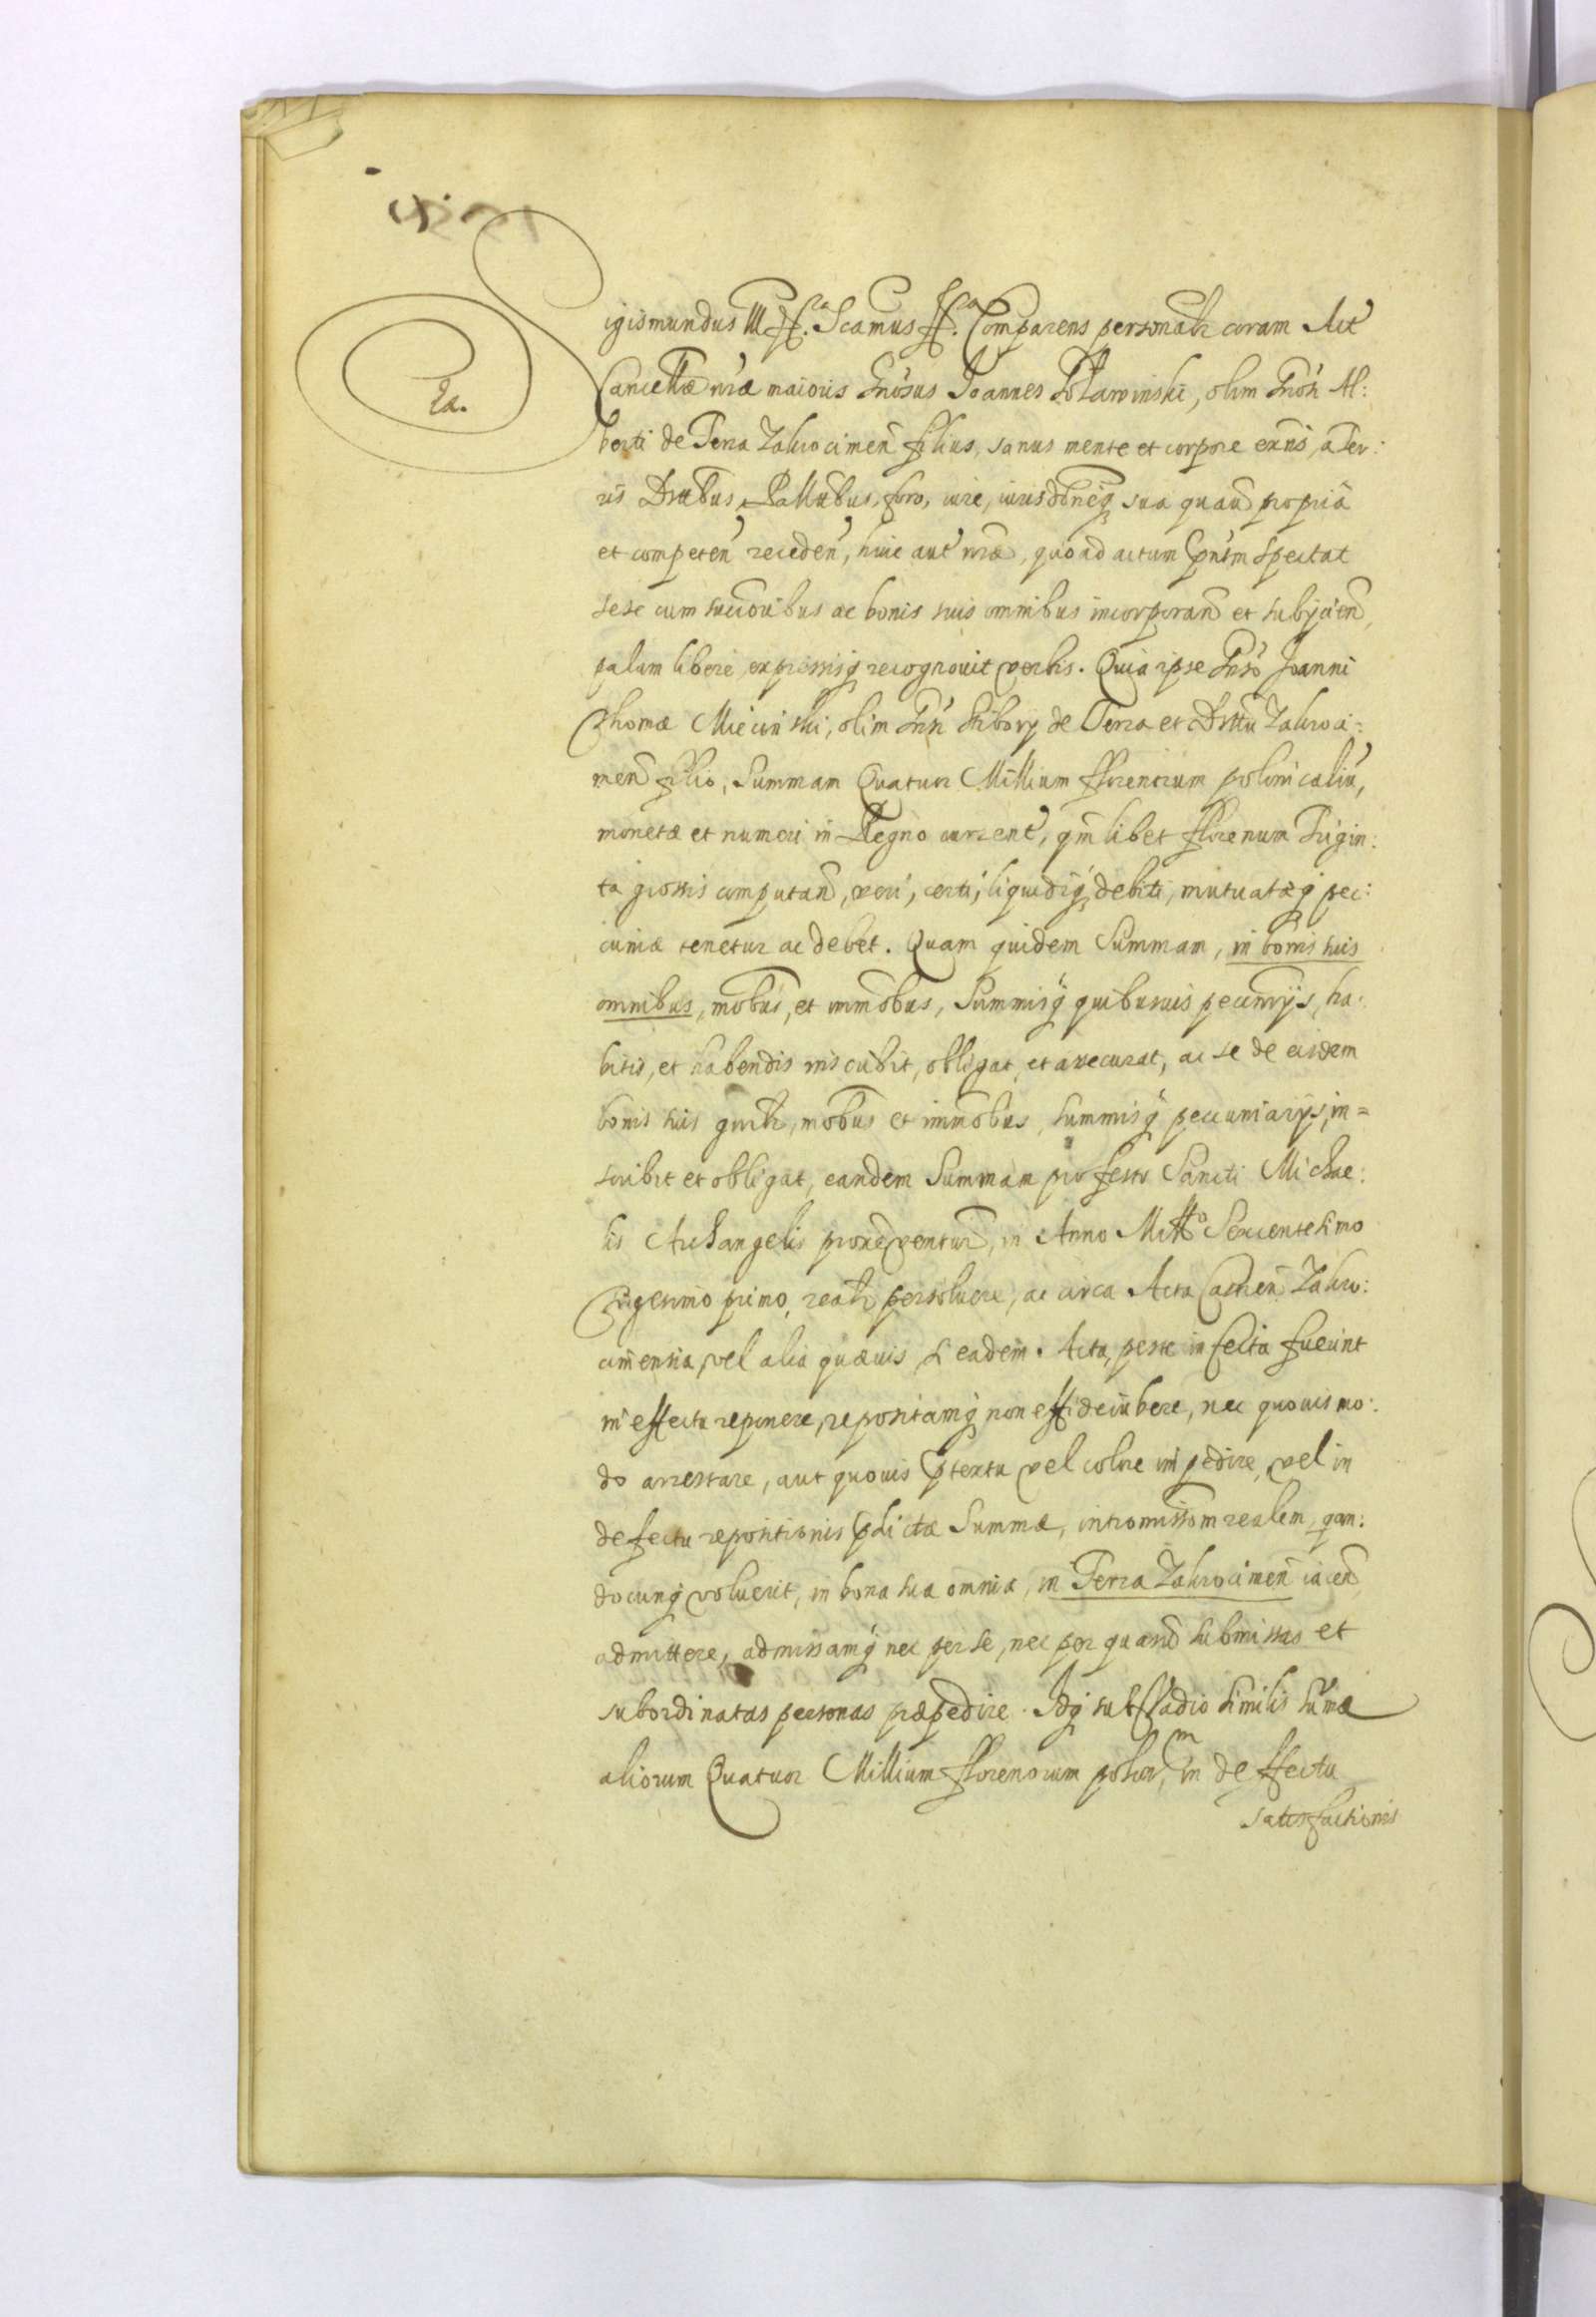 Sigismundus III etc. Scamus etc. Comparens personalr coram Act
Cancellæ nræ maioris Gnosus Joannes Poławinski, olim Gnosi Al:
berti de Terra Zakrocimen filius, sanus mente et corpore exns, a Ter:
ris Drttbus, Pallntbus, foro, iure, iurisdoneq sua quavis propria
et competen receden, huic aut nræ, quoad actum pntm spectat
sese cum succoribus ac bonis suis omnibus incorporan et subijcien
palam libere expressisq recognouit verbis. Quia ipse Gnso Joanni
Thomæ Miecinski, olim Gnsi Stibory de Terra et Drttu Zakroci=
men filio, Summam Quatuor Millium florenorum polonicaliu,
monetæ et numeri in Regno current, qmlibet florenum Trigin:
ta grossis computan, veri, certi, liquidiq debiti, mutuatæq pec:
cuniæ tenetur ac debet. Quam quidem Summam, in bonis suis
omnibus, mobus, et immobus, Summisq quibusuis pecunijs, ha:
bitis, et habendis inscribit, obligat, et assecurat, ac se de eisdem
bonis suis gnrlr, mobus et immobus, summisq pecuniarijs, in=
scribit et obligat, eandem Summam pro festo Sancti Michae:
lis Archangelis proxe ventur, in Anno Millo Sexcentesimo
Trigesimo primo, realr persoluere, ac circa Acta Castren Zakro:
cimensia, vel alia quævis si eadem Acta, peste infecta fuerint
in effectu reponere, repositamq non effideiubere, nec quouis mo:
do arrestare, aut quouis ptextu vel colore impedire, vel in
defectu repositionis pdictæ Summæ, intromissionem realem, qan:
docunq voluerit, in bona sua omnia, in Terra Zakrocimen iacen
admittere, admissamq nec per se, nec per quasuis submissas et
subordinatas personas præpedire. Idq sub vadio similis sumæ
aliorum Quatuor Millium florenorum polon, in deffectu
satisfactionis